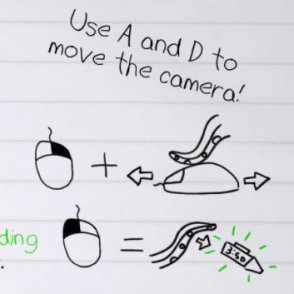 Use A and D to
move the camera!
+
ding =
.
3:50